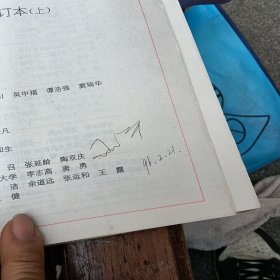 订本(上)
吴中福 谭浩强 窦瑞华
凡
召 张延龄 陶双庆
大学 李志高 唐勇
洁 余道远 张运和 王露
健
96.2.21.